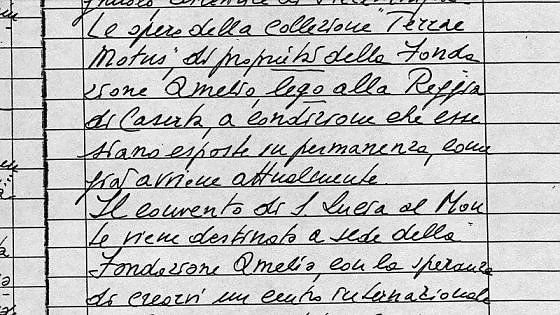 Le opere della collezione "Terrae
Motus", di proprietà della Fonda
zione Amelio, lego alla Reggia
di Caserta, a condizione che esse
siano esposte in permanenza, come
già avviene attualmente
Il convento di S. Lucia al Mon
te viene destinato a sede della
Fondazione Amelio, con la speranza
di crearvi un centro internazionale